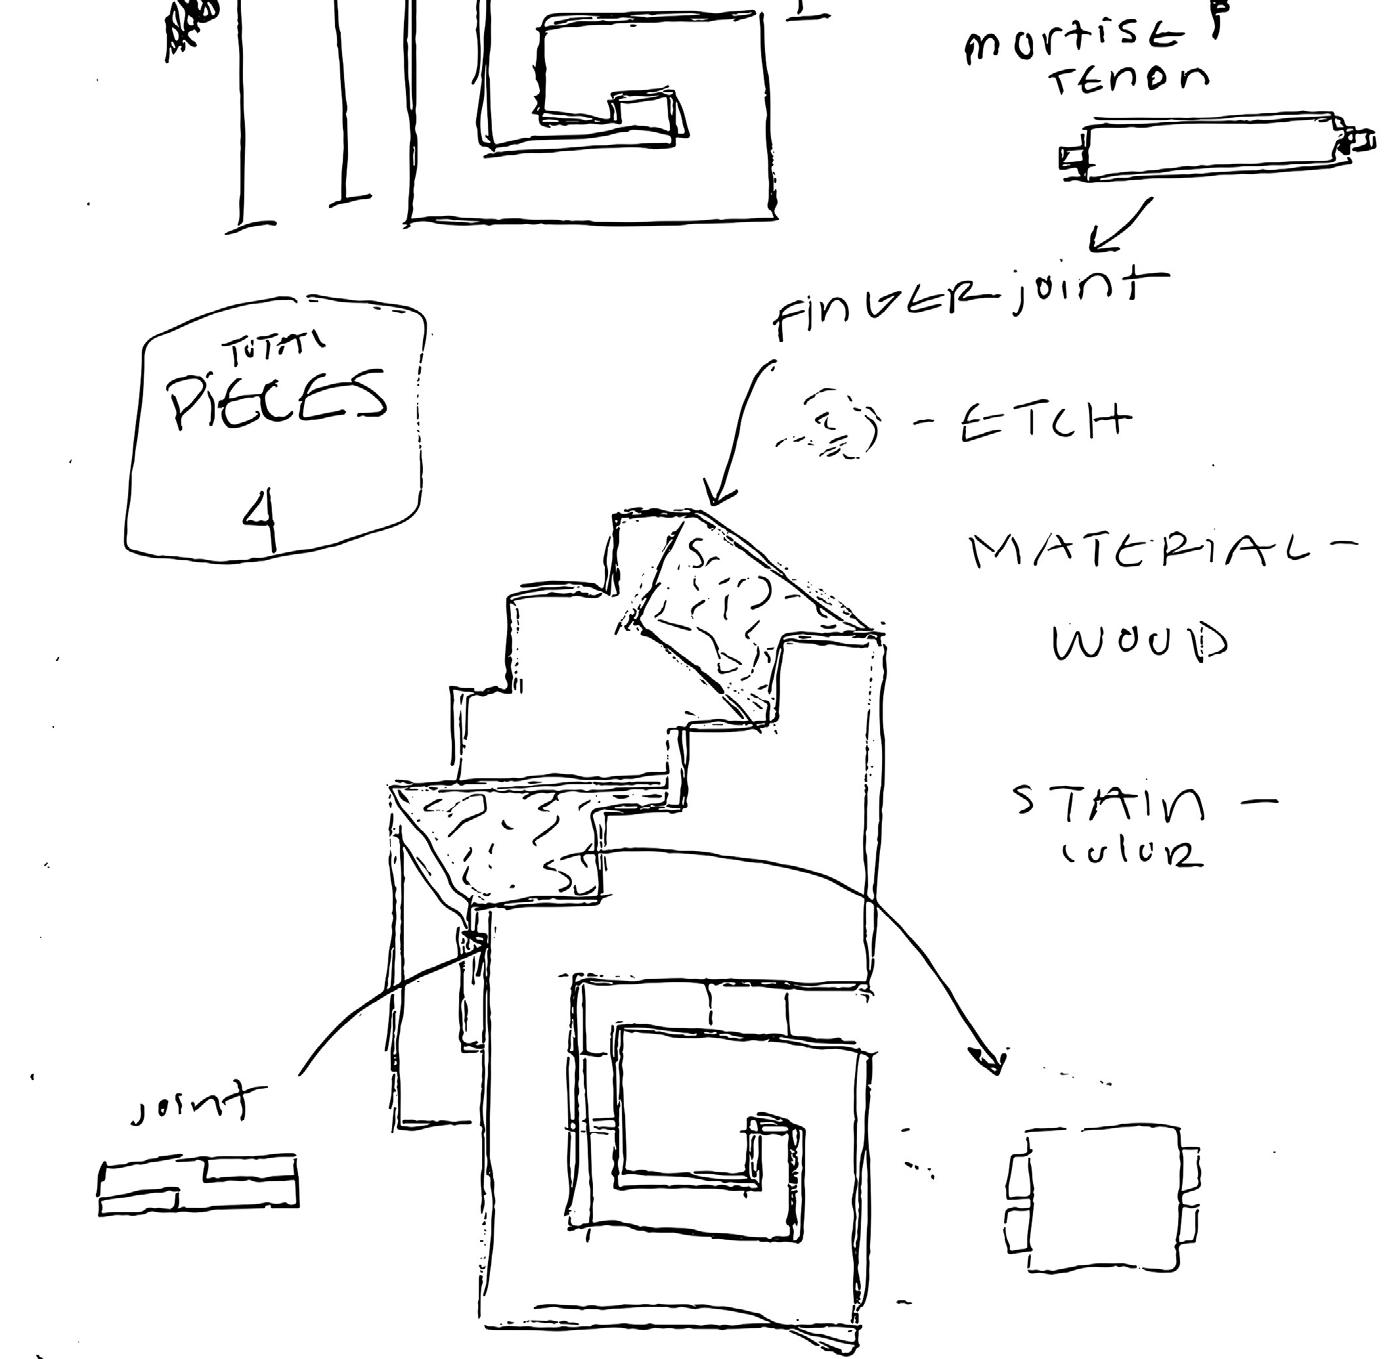 mortise &
TENON
FINGER joint
TOTAL
PIECES
4
- ETCH
MATERIAL -
WOOD
STAIN -
color
joint